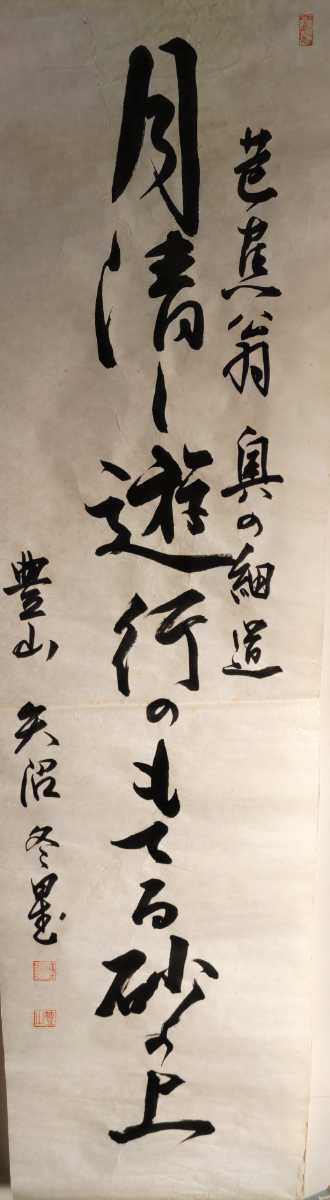 芭蕉翁 奥の細道
月清し遊行のもてる砂の上
豊山 矢沼冬星